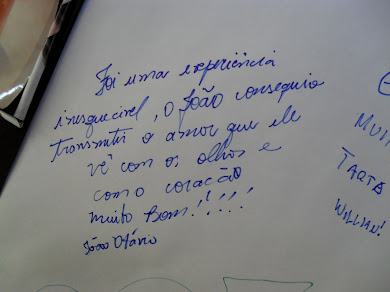 Foi uma experiência
inesquecivel, o João conseguio
transmitir o amor que ele
vê com os olhos e
com o coração
muito Bom!!!!!
João Otávio
MUIT
TARTA
WILLIAN!